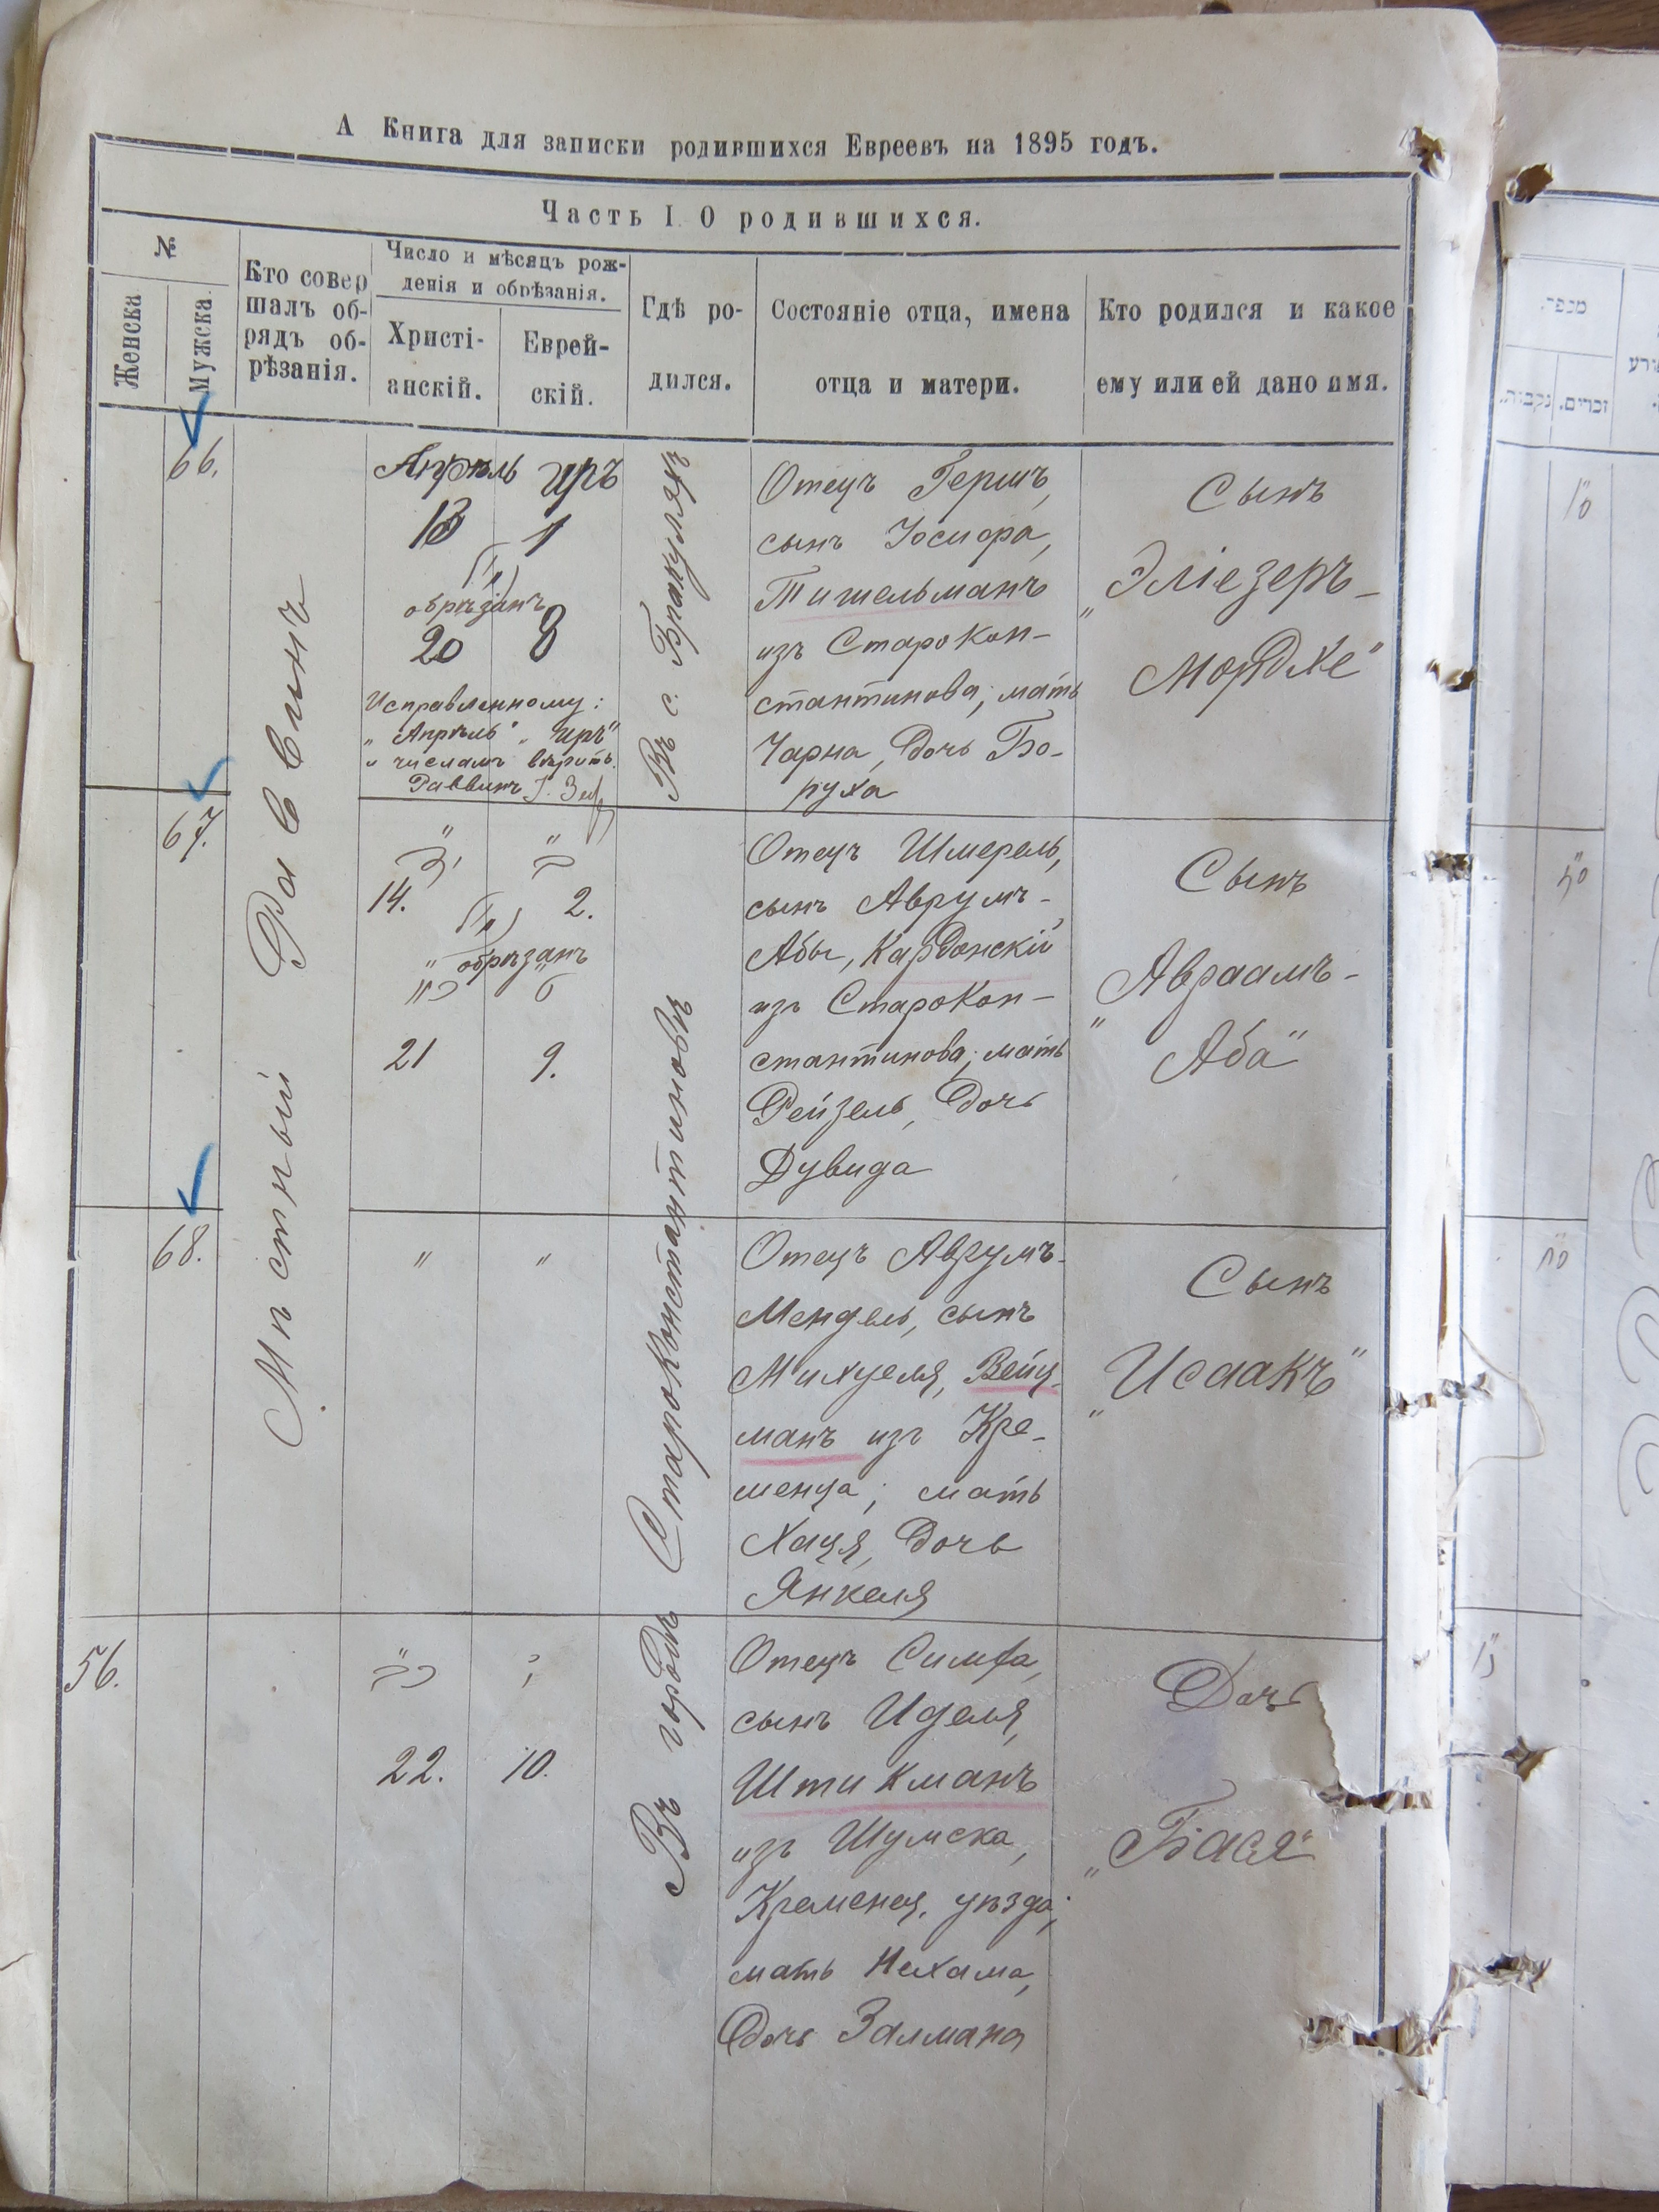 А Книга для записки родившихся Евреевъ на 1895 годъ.
Часть I О родившихся.
№
Женска
Мужска
Кто совер
шалъ об-
рядъ об-
рѣзанія.
Число и мѣсяцъ рож-
денія и обрѣзанія.
Христі-
анскій.
Еврей-
скій.
Гдѣ ро-
дился.
Состояніе отца, имена
отца и матери.
Кто родился и какое
ему или ей дано имя.
Мѣстный Раввинъ
66.
Апрѣль иръ
13 1
обрѣзанъ
20 8
Исправленному:
"Апрѣль" "иръ"
и числамъ вѣрить.
Раввинъ
Въ с.
Отецъ Гершъ,
сынъ Іосифа,
Тишельманъ
изъ Старокон-
стантинова; мать
Чарна, дочь Бо-
руха
Сынъ
"Эліезеръ-
Мордхе"
67.
" "
14. 2.
" обрѣзанъ "
21 9.
Въ городѣ Старокон­стантиновѣ
Отецъ Шмерель,
сынъ Аврумъ-
Абы, Кардонскій
изъ Старокон-
стантинова; мать
Рейзель, дочь
Дувида
Сынъ
"Авраамъ-
Аба"
68.
" "
Отецъ Аврумъ-
Мендель, сынъ
Михуеля, Вейц-
манъ изъ Кре-
менца; мать
Хаця, дочь
Янкеля
Сынъ
"Исаакъ"
56.
" "
22. 10.
Отецъ Симха,
сынъ Иделя,
Штикманъ
изъ Шумска,
Кременец. уѣзда;
мать Нехама,
дочь Залмана
Дочь
"Бася"
מספר.
זכרים.
נקבות.